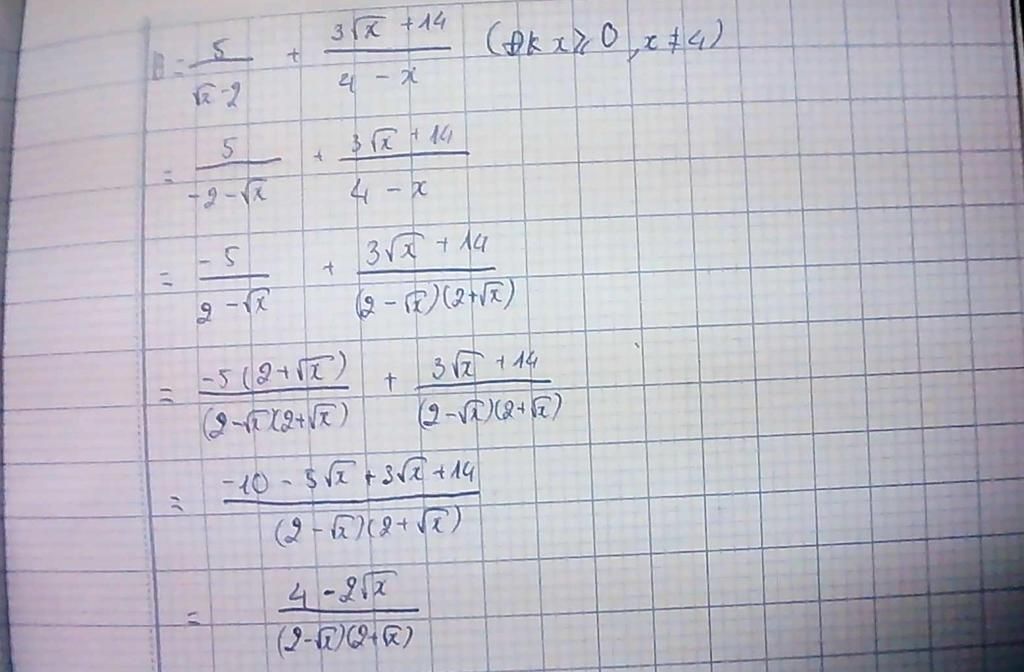 B = 5/(√x - 2) + (3√x + 14)/(4 - x) (ĐK x ≥ 0, x ≠ 4)
= 5/(-2 - √x) + (3√x + 14)/(4 - x)
= -5/(2 - √x) + (3√x + 14)/((2 - √x)(2 + √x))
= -5(2 + √x)/((2 - √x)(2 + √x)) + (3√x + 14)/((2 - √x)(2 + √x))
= (-10 - 5√x + 3√x + 14)/((2 - √x)(2 + √x))
= (4 - 2√x)/((2 - √x)(2 + √x))